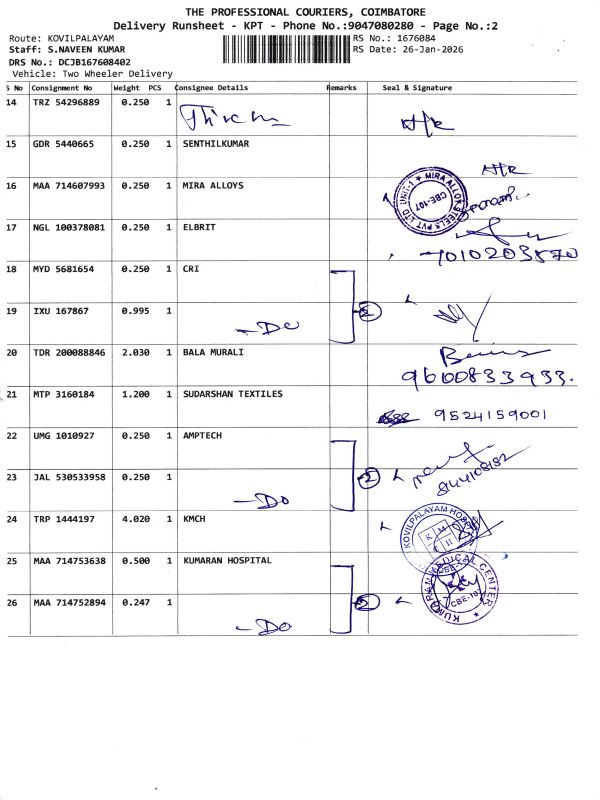 THE PROFESSIONAL COURIERS, COIMBATORE
Delivery Runsheet - KPT - Phone No.:9047080280 - Page No.:2
Route: KOVILPALAYAM
RS No.: 1676084
Staff: S.NAVEEN KUMAR
RS Date: 26-Jan-2026
DRS No.: DCJB167608402
Vehicle: Two Wheeler Delivery
S No Consignment No Weight PCS Consignee Details Remarks Seal & Signature
14 TRZ 54296889 0.250 1
15 GDR 5440665 0.250 1 SENTHILKUMAR
16 MAA 714607993 0.250 1 MIRA ALLOYS
MIRA ALLOY STEELS PVT LTD UNIT-1 CBE-107
17 NGL 100378081 0.250 1 ELBRIT
7010203870
18 MYD 5681654 0.250 1 CRI
19 IXU 167867 0.995 1 -Do
20 TDR 200088846 2.030 1 BALA MURALI
9600833933.
21 MTP 3160184 1.200 1 SUDARSHAN TEXTILES
9524159001
22 UMG 1010927 0.250 1 AMPTECH
2
23 JAL 530533958 0.250 1 -Do
24 TRP 1444197 4.020 1 KMCH
KOVILPALAYAM HOSP
25 MAA 714753638 0.500 1 KUMARAN HOSPITAL
KUMARAN MEDICAL CENTER CBE-107
26 MAA 714752894 0.247 1 -Do